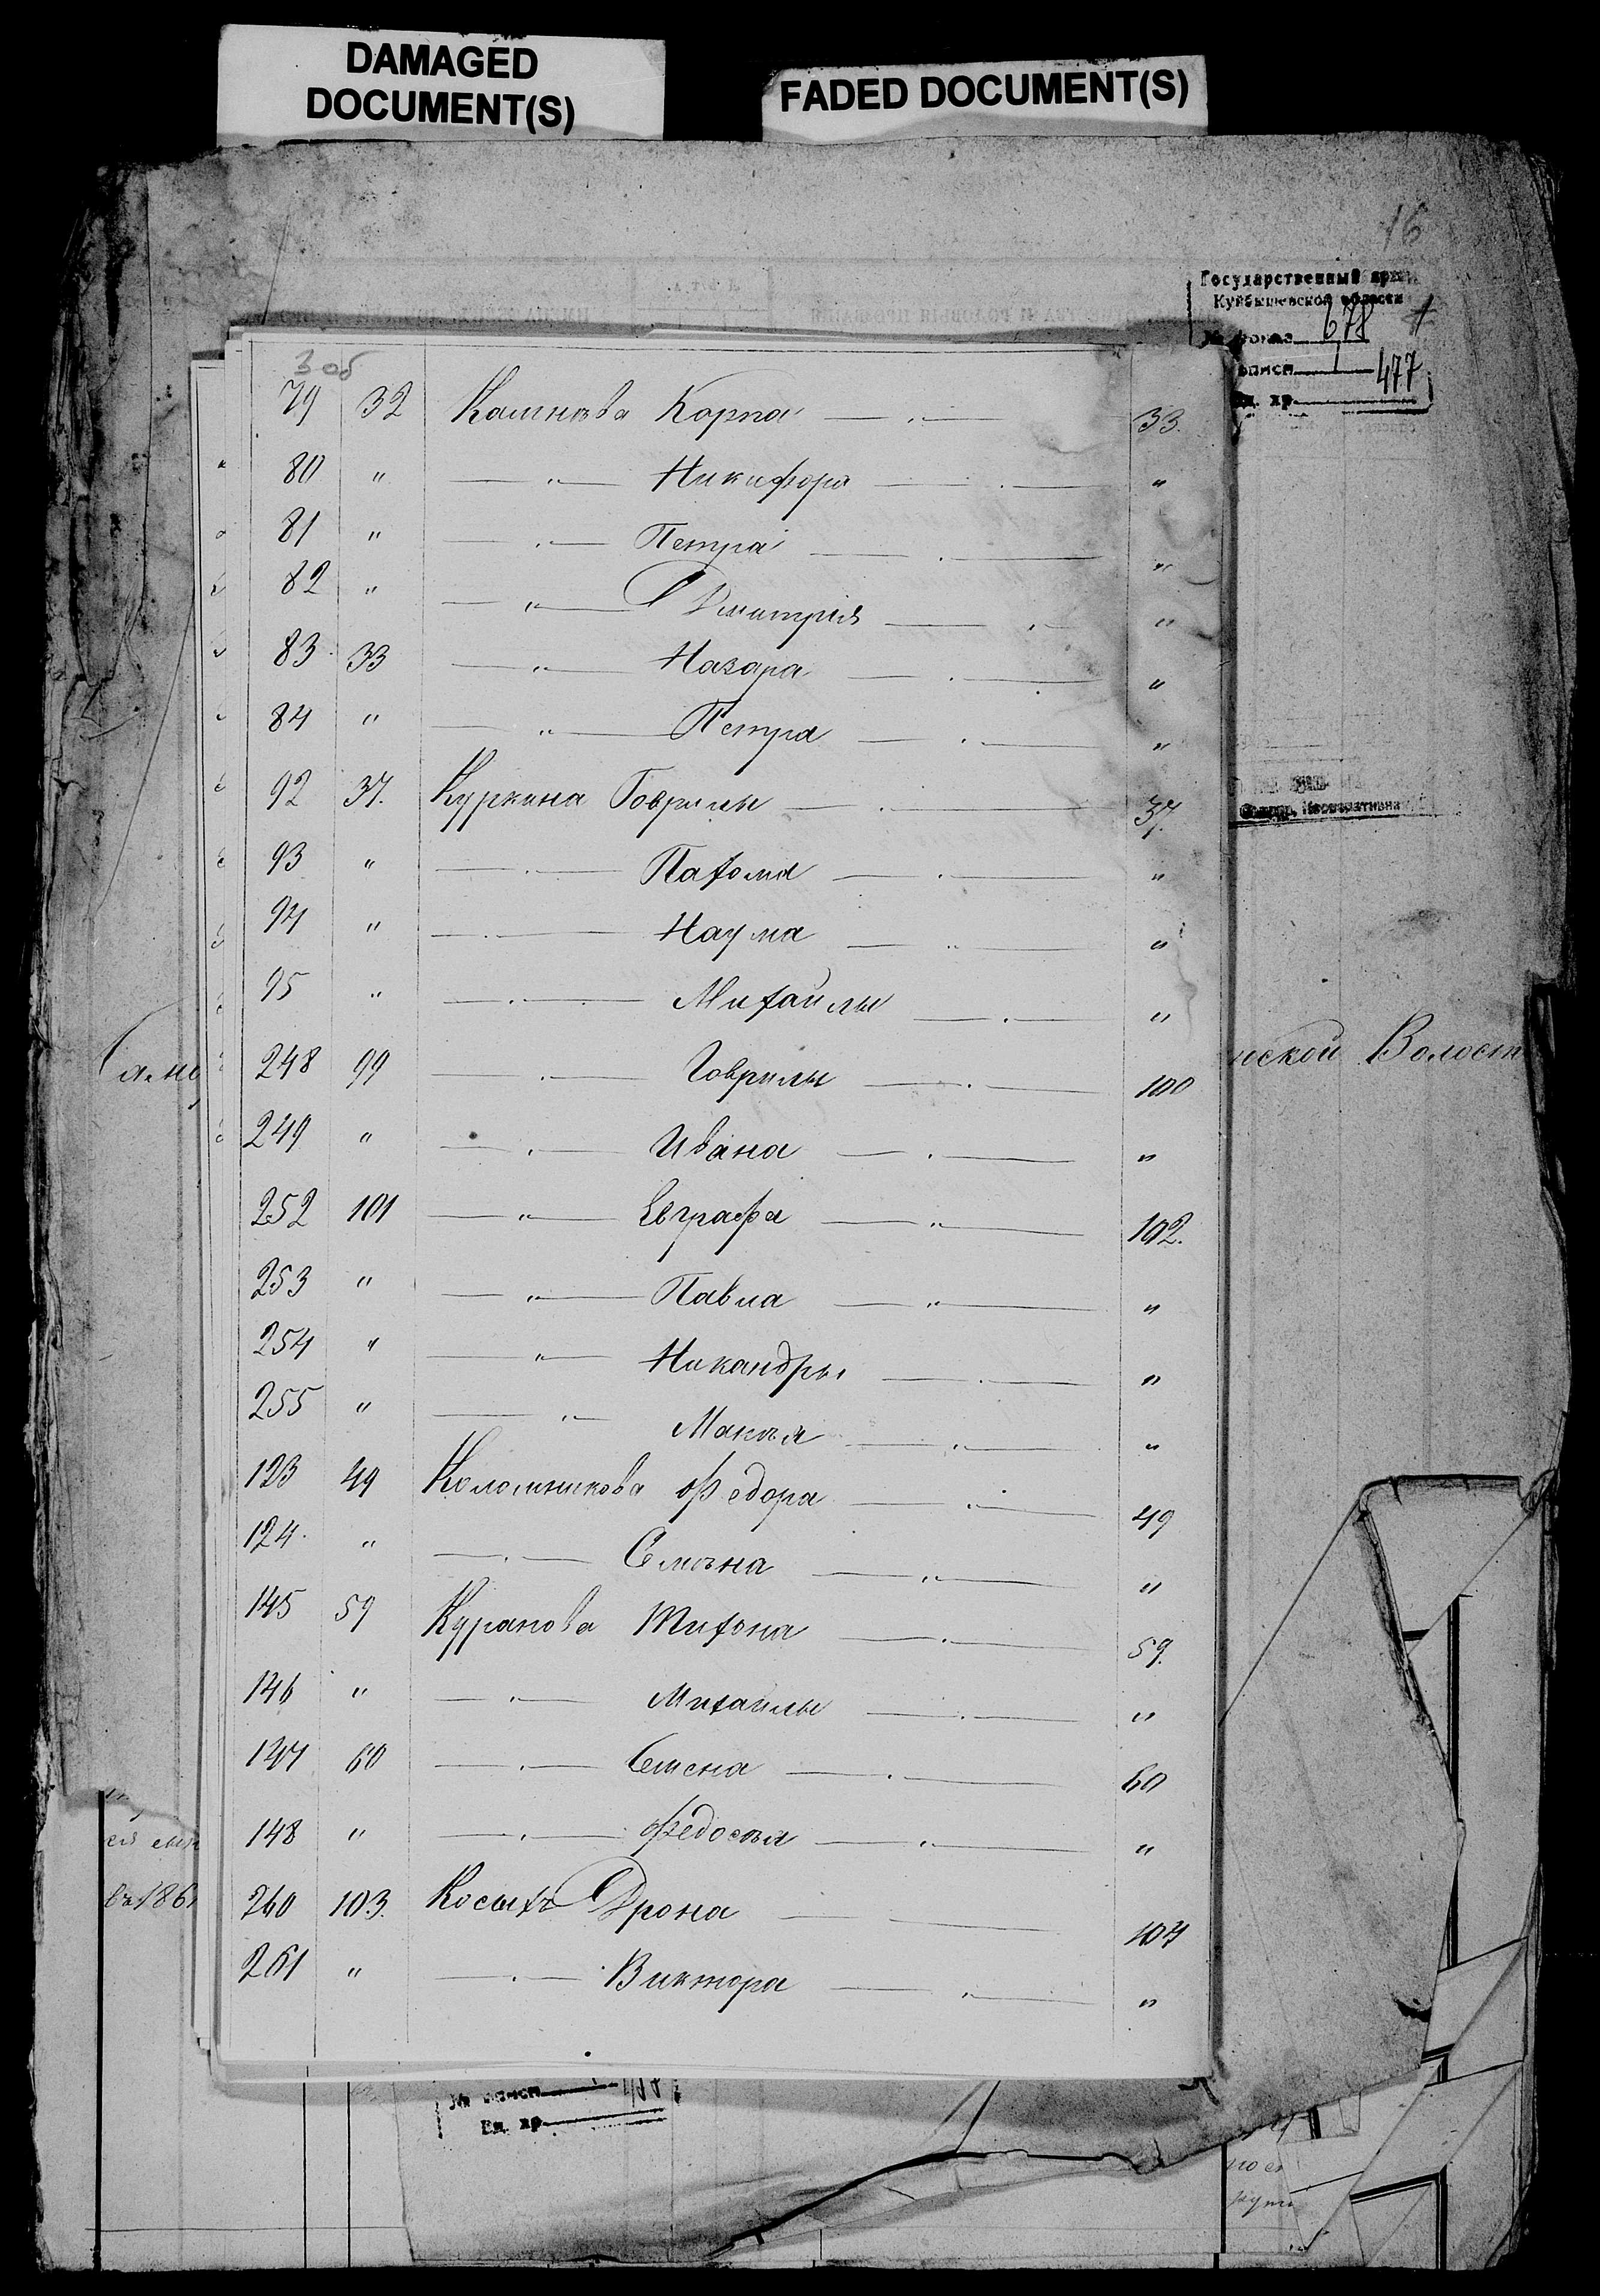 DAMAGED
DOCUMENT(S)
FADED DOCUMENT(S)
16
Государственный
Куйбышевской области
678
описи 1
477
3 об
79 32 Калинова Карпа — " — 33.
80 " — " — Никифора — " — "
81 " — " — Петра — " — "
82 " — " — Дмитрия — " — "
83 33 — " — Назара — " — "
84 " — " — Петра — " — "
92 37. Куркина Гаврилы — " — 37.
93 " — " — Пахома — " — "
94 " — " — Наума — " — "
95 " — " — Михайлы — " — "
248 99 — " — Гаврилы — " — 100
249 " — " — Ивана — " — "
252 101 — " — Евграфа — " — 102.
253 " — " — Павла — " — "
254 " — " — Никандры — " — "
255 " — " — Макѣя — " — "
123 49 Федора — " — 49
124 " — " — Семѣна — " — "
145 59 Куранова Тихона — " — 59.
146 " — " — Михайлы — " — "
147 60 — " — Семена — " — 60
148 " — " — Федосѣя — " — "
260 103. Косыхъ Дрона — — 104
261 " — " — Виктора — " — "
нской Волост
№ описи
Ед. хр.